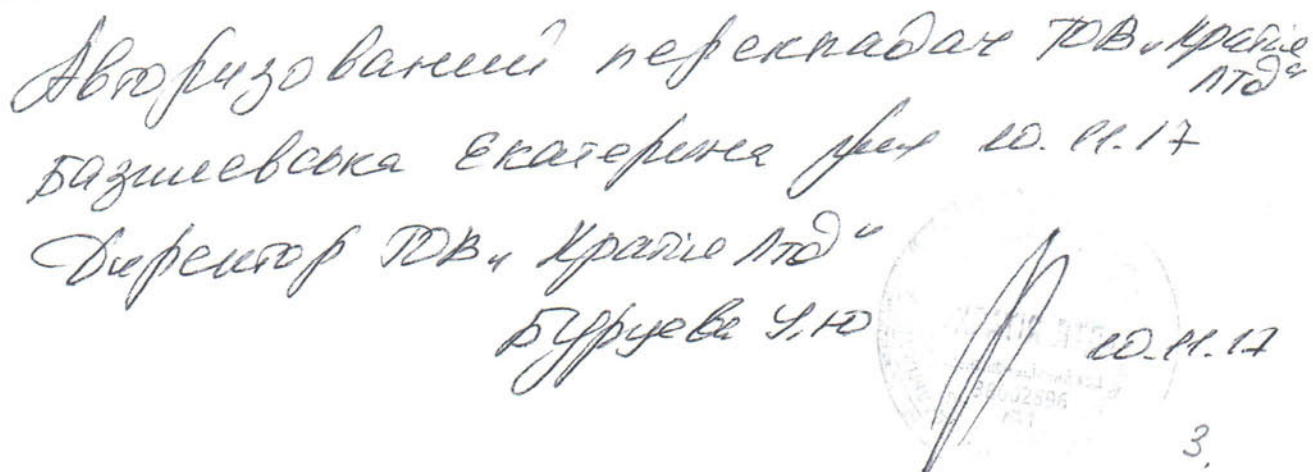 Авторизований перекладач ТОВ „Кратіє
ЛТД“
Базилевська Екатерина 10.11.17
Директор ТОВ „Кратіє Лтд“
Буруева У.Ю 10.11.17
3.